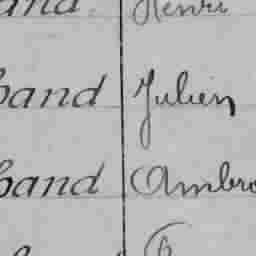 and Henri
band Julien
band Ambro